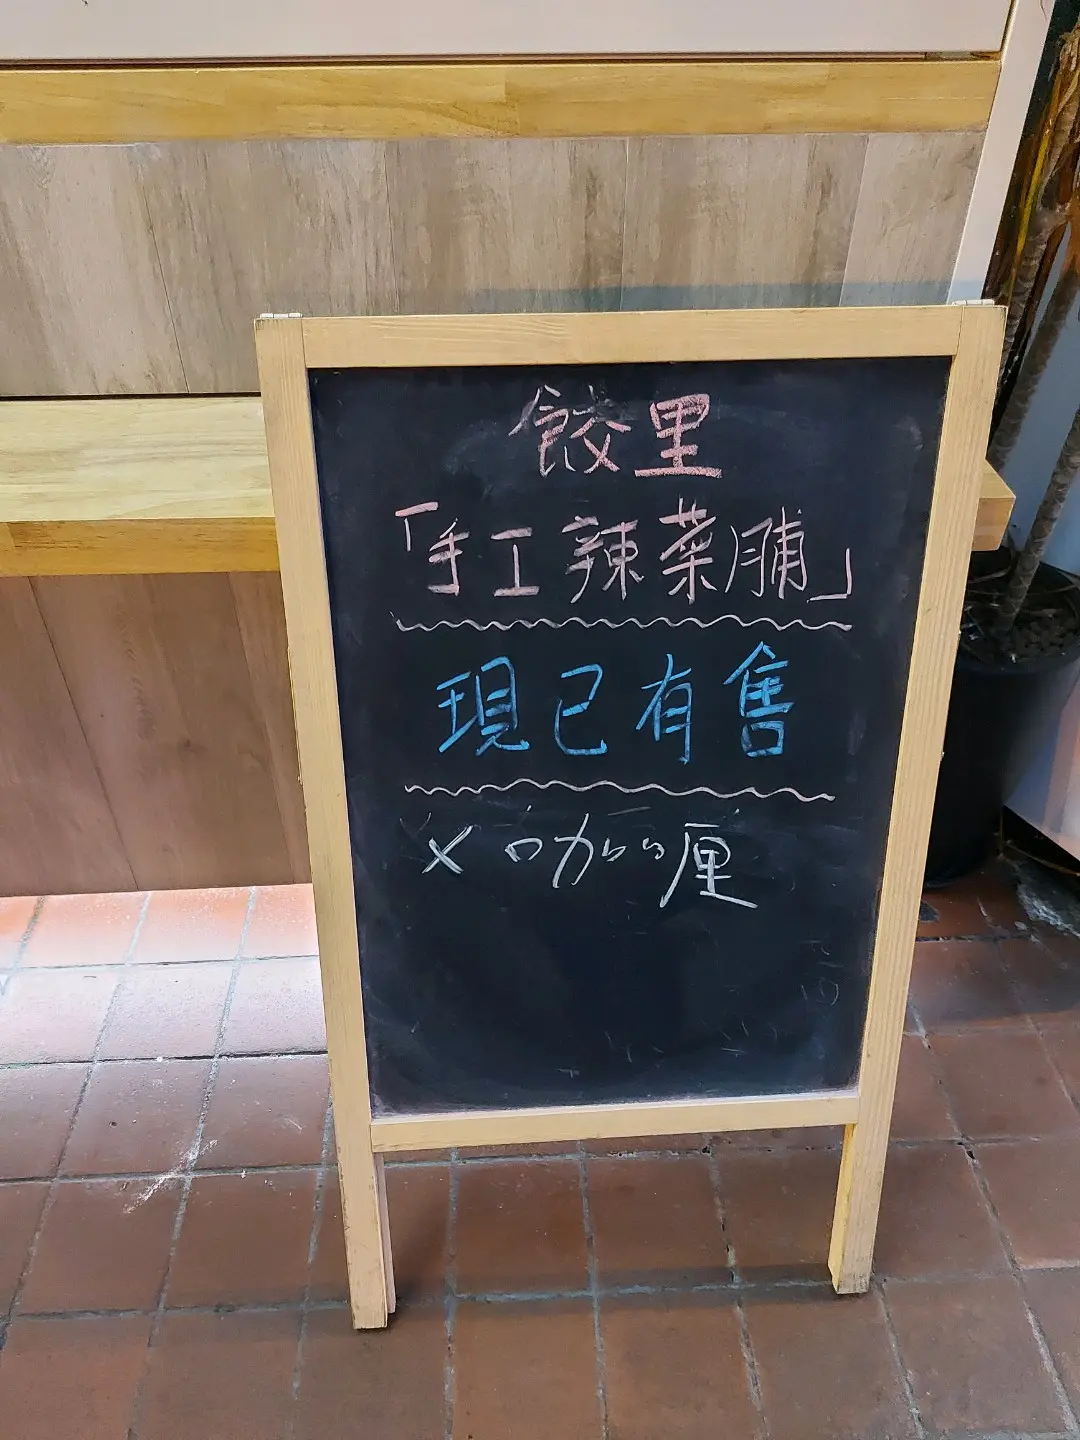 餃里
「手工辣菜脯」
現已有售
×咖厘